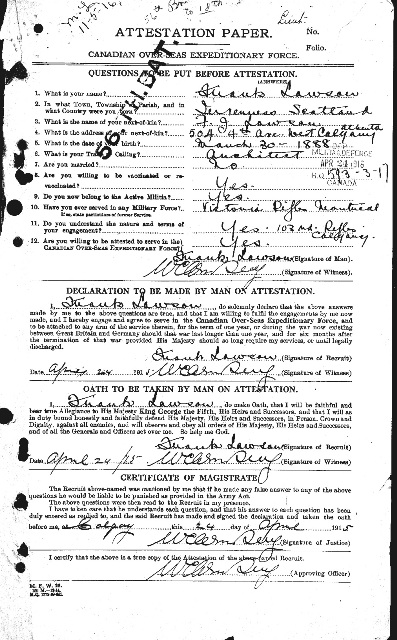 Lieut.
ATTESTATION PAPER.
No.
Folio.
CANADIAN OVER-SEAS EXPEDITIONARY FORCE.
56 BAT.
QUESTIONS TO BE PUT BEFORE ATTESTATION.
(ANSWERS)
1. What is your name? Frank Lawson
2. In what Town, Township or Parish, and in what Country were you born? Inverness Scotland
3. What is the name of your next-of-kin? Lawson
4. What is the address of your next-of-kin? 504 4th Ave West Calgary Alberta
5. What is the date of your birth? March 30 - 1888
6. What is your Trade or Calling? Architect
MILITIA & DEFENCE
7. Are you married? No
APR 21 1916
8. Are you willing to be vaccinated or re-vaccinated? Yes.
H.Q. 593-3-17
CANADA
9. Do you now belong to the Active Militia? Yes.
10. Have you ever served in any Military Force? Victoria Rifles Montreal
If so, state particulars of former Service.
11. Do you understand the nature and terms of your engagement? Yes. 103rd Rifles Calgary
12. Are you willing to be attested to serve in the CANADIAN OVER-SEAS EXPEDITIONARY FORCE? Yes.
Frank Lawson (Signature of Man).
(Signature of Witness).
DECLARATION TO BE MADE BY MAN ON ATTESTATION.
I, Frank Lawson, do solemnly declare that the above answers
made by me to the above questions are true, and that I am willing to fulfil the engagements by me now
made, and I hereby engage and agree to serve in the Canadian Over-Seas Expeditionary Force, and
to be attached to any arm of the service therein, for the term of one year, or during the war now existing
between Great Britain and Germany should that war last longer than one year, and for six months after
the termination of that war provided His Majesty should so long require my services, or until legally
discharged.
Frank Lawson (Signature of Recruit)
Date April 24 1915 (Signature of Witness)
OATH TO BE TAKEN BY MAN ON ATTESTATION.
I, Frank Lawson, do make Oath, that I will be faithful and
bear true Allegiance to His Majesty King George the Fifth, His Heirs and Successors, and that I will as
in duty bound honestly and faithfully defend His Majesty, His Heirs and Successors, in Person, Crown and
Dignity, against all enemies, and will observe and obey all orders of His Majesty, His Heirs and Successors,
and of all the Generals and Officers set over me. So help me God.
Frank Lawson (Signature of Recruit)
Date April 24 1915 (Signature of Witness)
CERTIFICATE OF MAGISTRATE
The Recruit above-named was cautioned by me that if he made any false answer to any of the above
questions he would be liable to be punished as provided in the Army Act.
The above questions were then read to the Recruit in my presence.
I have taken care that he understands each question, and that his answer to each question has been
duly entered as replied to, and the said Recruit has made and signed the declaration and taken the oath
before me, at Calgary this 24 day of April 1915
(Signature of Justice)
I certify that the above is a true copy of the Attestation of the above-named Recruit.
(Approving Officer)
M. F. W. 23.